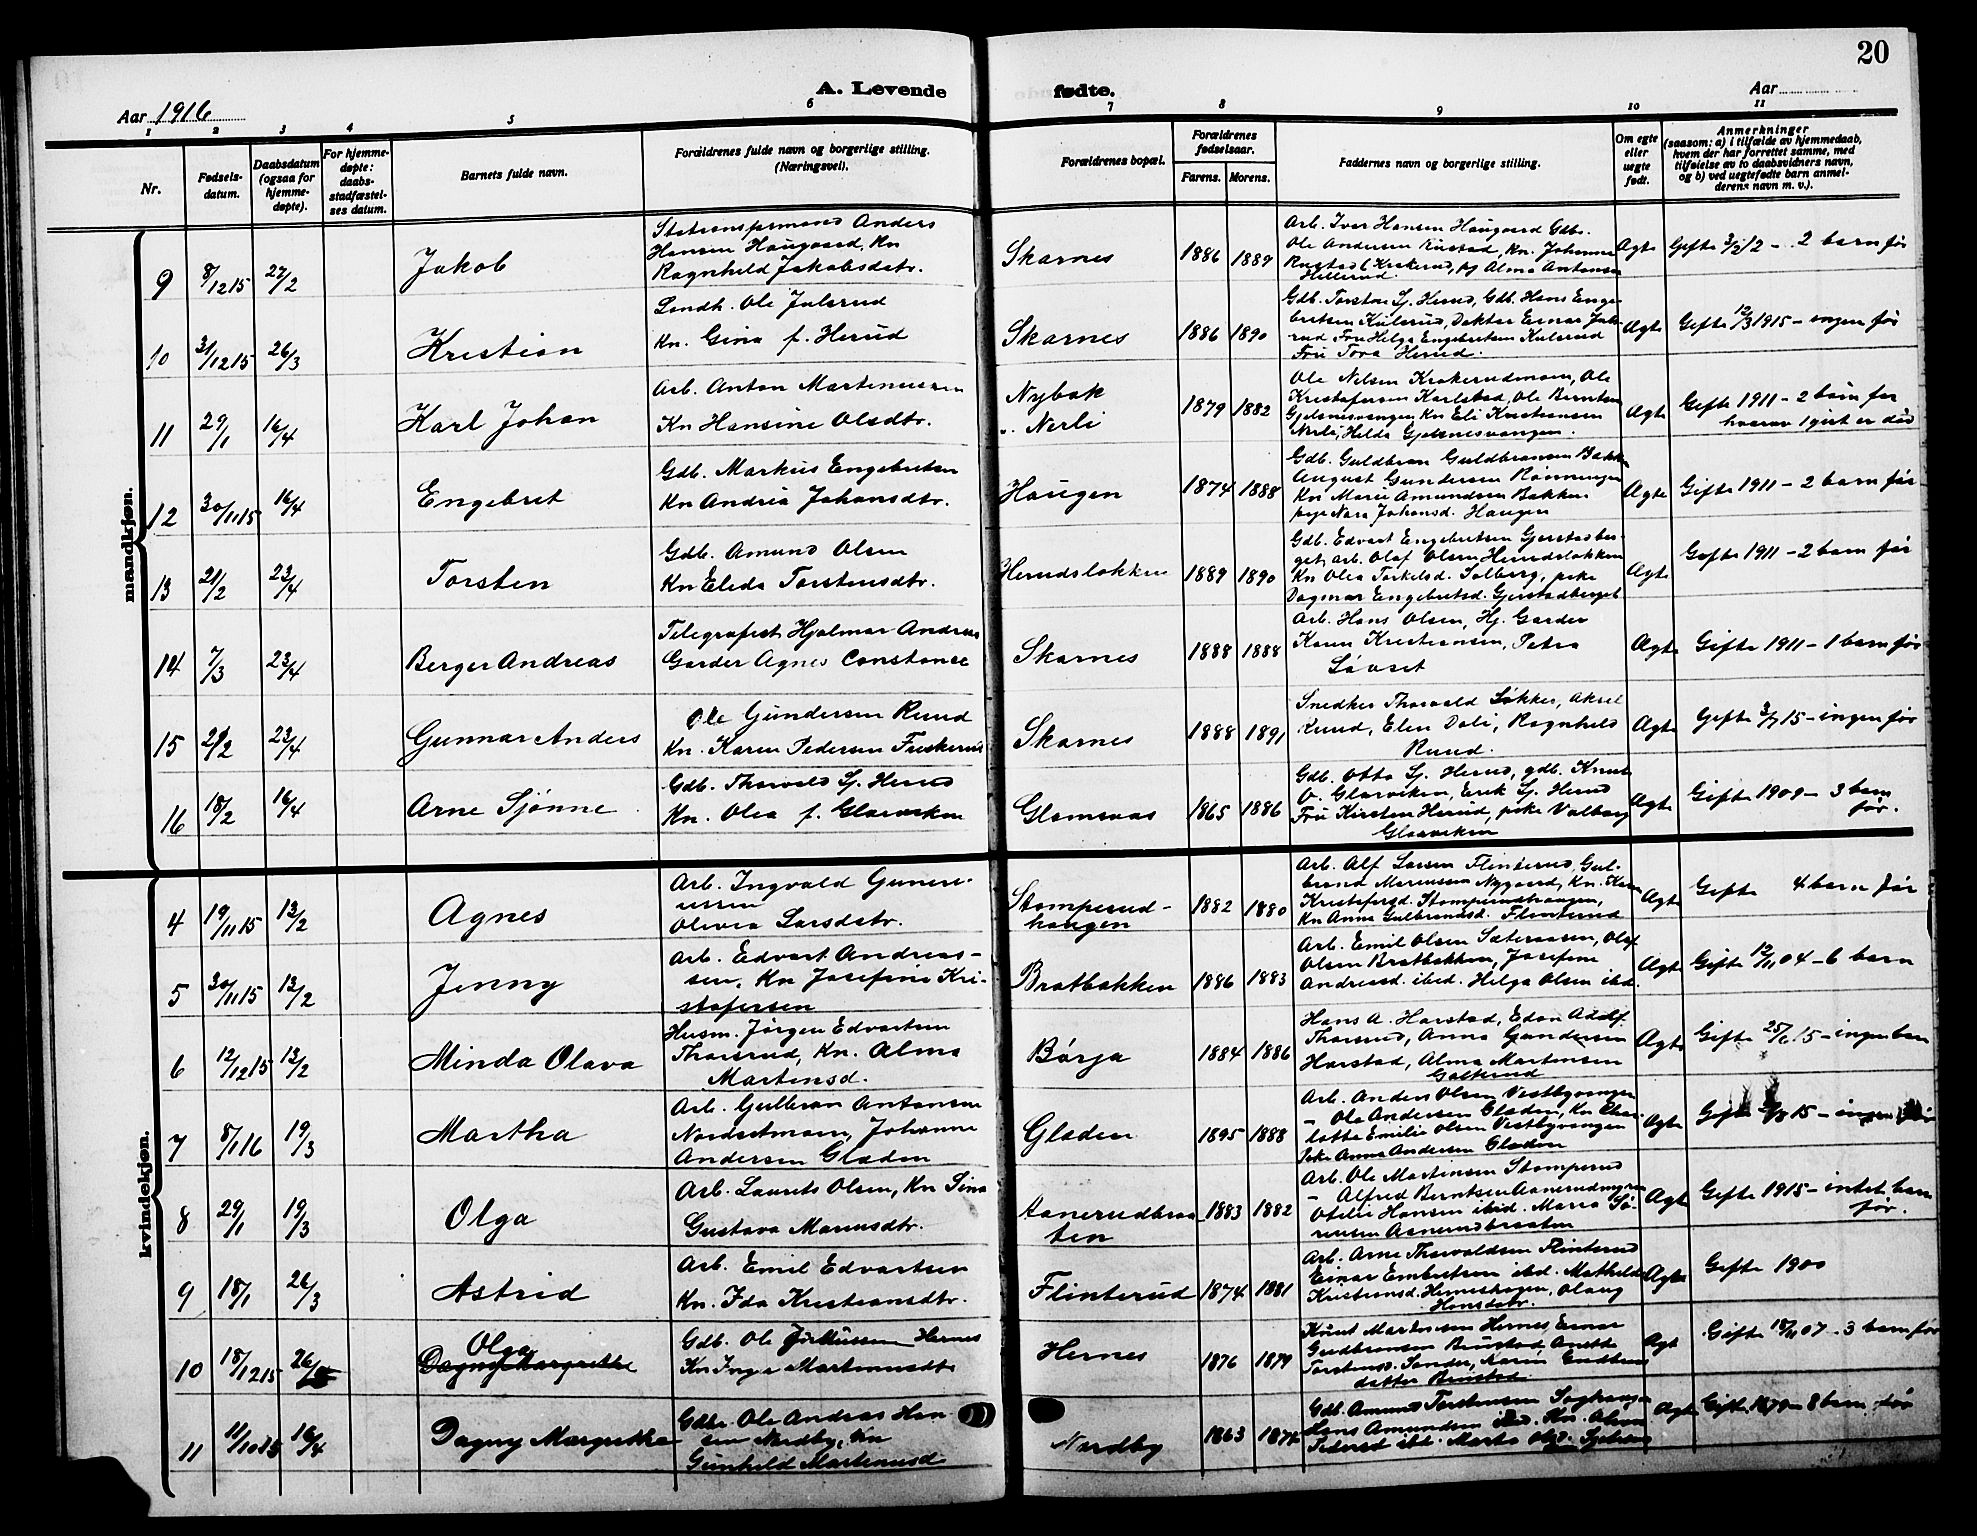 20
A. Levende fødte.
Aar 1916
Aar
1 2 3 4 5 6 7 8 9 10 11
Nr.
Fødsels-
datum.
Daabsdatum
(ogsaa for
hjemme-
døpte).
For hjemme-
døpte:
daabs-
stadfæstel-
ses datum.
Barnets fulde navn.
Forældrenes fulde navn og borgerlige stilling.
(Næringsvei).
Forældrenes bopæl.
Forældrenes
fødselsaar.
Farens. Morens.
Faddernes navn og borgerlige stilling.
Om egte
eller
uegte
født.
Anmerkninger
(saasom: a) i tilfælde av hjemmedaab,
hvem der har forrettet samme, med
tilføielse av to daabsvidners navn,
og b) ved uegtefødte barn anmel-
derens navn m. v.).
mandkjøn.
9 8/12 15 27/2 Jakob
Stationsformand Anders
Hansen Haugaard, Kn
Ragnhild Jakobsdtr.
Skarnes 1886 1889
Arb. Iver Hansen Haugaard Gdb.
Ole Andersen Rustad, Kn. Johanne
Rustad, Alma Antonsen
Hellerud.
Ægte Gifte 3/2 12 – 2 barn før
10 31/12 15 26/3 Kristian
Landh. Ole Julsrud
Kn. Gina f. Herud
Skarnes 1886 1890
Gdb. Torsten Sj. Herud, Gdb. Hans Enge-
bretsen Kulsrud, Doktor Einar Juls-
rud Fru Helga Engebretsen Kulsrud
Fru Tora Herud.
Ægte Gifte 12/3 1915 – ingen før
11 29/1 16/4 Karl Johan
Arb. Anton Martinussen
Kn Hansine Olsdtr.
Nybak
Nerli
1879 1882
Ole Nilsen Krakerudmoen, Ole
Kristofersen Karlstad, Ole Berntsen
Gjølsnesvangen Kn Eli Kristiansen
Nerli, Hilda Gjølsnesvangen.
Ægte Gifte 1911 – 2 barn før
hvorav 1 gut er død
12 30/11 15 16/4 Engebret
Gdb. Markus Engebretsen
Kn Andrea Johansdtr.
Haugen 1874 1888
Gdb. Guldbran Guldbransen Bakken
August Gundersen Rønningen
Kn Marie Amundsen Bakken
pige Nora Johansd. Haugen
Ægte Gifte 1911 – 2 barn før
13 21/2 23/4 Torsten
Gdb. Amund Olsen
Kn Elida Torstensdtr.
Herudsløkken 1889 1890
Gdb. Edvart Engebretsen Gjerstadber-
get, arb. Olaf Olsen Herudsløkken
Kn Olea Torkelsd. Solberg, pike
Dagmar Engebretsd. Gjerstadberget
Ægte Gifte 1911 – 2 barn før
14 7/3 23/4 Berger Andreas
Telegrafist Hjalmar Andreas
Garder Agnes Constance
Skarnes 1888 1888
Arb. Hans Olsen, Hj. Garder
Karen Kristiansen, Petra
Ægte Gifte 1911 – 1 barn før
15 21/2 23/4 Gunnar Anders
Ole Gundersen Ruud
Kn. Karen Pedersen Fuskerud
Skarnes 1888 1891
Snedker Thorvald Løkker, Aksel
Ruud, Elen Dali, Ragnhild
Ruud.
Ægte Gifte 3/7 15 – ingen før
16 18/2 16/4 Arne Sjønne
Gdb. Thorvald Sj. Herud
Kn. Olea f. Glorviken
Glomsaas 1865 1886
Gdb. Otto Sj. Herud, gdb. Knut
O. Glorviken, Erik Sj. Herud
Fru Kirsten Herud, pike Valborg
Glorviken
Ægte Gifte 1909 – 3 barn
før.
kvindekjøn.
4 19/11 15 13/2 Agnes
Arb. Ingvald Gunere-
ussen
Olivia Larsdatr.
Stomperud-
haugen
1882 1880
Arb. Alf Larsen Flinterud, Gul-
brand Mareussen Nygaard, Kn. Karen
Kristofersd. Stomperudhaugen,
Kn Anna Gulbrandsd. Flinterud
Ægte Gifte 4 barn før
5 30/11 15 13/2 Jenny
Arb. Edvart Andreas-
sen, Kn Josefine Kri-
stofersen
Bratbakken 1886 1883
Arb. Emil Olsen Sæteraasen, Olaf
Olsen Bratbakken, Josefine
Andreasd. ibid. Helga Olsen ibid.
Ægte Gifte 12/11 04 – 6 barn
6 12/12 15 13/2 Minda Olava
Husm. Jørgen Edvartsen
Thorsrud, Kn. Alma
Martinsd.
Børja 1884 1886
Hans A. Harstad, Edon Adolf
Thorsrud, Anna Gundersen
Harstad, Alma Martinsen
Galterud
Ægte Gifte 25/6 15 – ingen barn
7 8/1 16 19/3 Martha
Arb. Gulbran Antonsen
Nordsetmoen, Johanne
Andersen Gladen
Gladen 1895 1888
Arb. Anders Olsen Vestbyvangen
– Ole Andersen Gladen, Kn Char-
lotte Emilie Olsen Vestbyvangen
Pike Anna Andersen Gladen
Ægte Gifte 15 – ingen før
8 29/1 19/3 Olga
Arb. Laurits Olsen, Kn Sina
Gustava Mariusdtr.
Aanerudbraa-
ten
1883 1882
Arb. Ole Martinsen Stomperud
– Alfred Berntsen Aanerudmyren
Otelie Hansen ibid. Maria Sø-
rensen Aanerudbraaten
Ægte Gifte 1915 – intet barn
før.
9 18/1 26/3 Astrid
Arb. Emil Edvartsen
Kn. Ida Kristiansdtr.
Flinterud 1874 1881
Arb. Arne Thorvaldsen Flinterud
Einar Embretsen ibd. Mathilde
Kristiansd. Herneshagen, Olaug
Hansdatr.
Ægte Gifte 1900
10 18/12 15 26/ Olga
Dagny Margrethe
Gdb. Ole Hernes
Kn Inga Martinusdtr
Hernes 1876 1879
Knut Martinsen Hernes, Einar
Gudbransen Rustad, Anette
Torstensd. Sander, Karin Gudbrans
datter Rustad.
Ægt Gifte 18/11 07 – 3 barn før
11 11/10 15 16/4 Dagny Margrethe
Gdbr Ole Andreas Han-
sen Nordby, Kn
Gunhild Martinusd
Nordby 1863 1874
Gdb. Amund Torstensen
Hans Amundsen Kn. Olava
Pedersd ibd. Marta
Ægte Gifte – 8 barn før